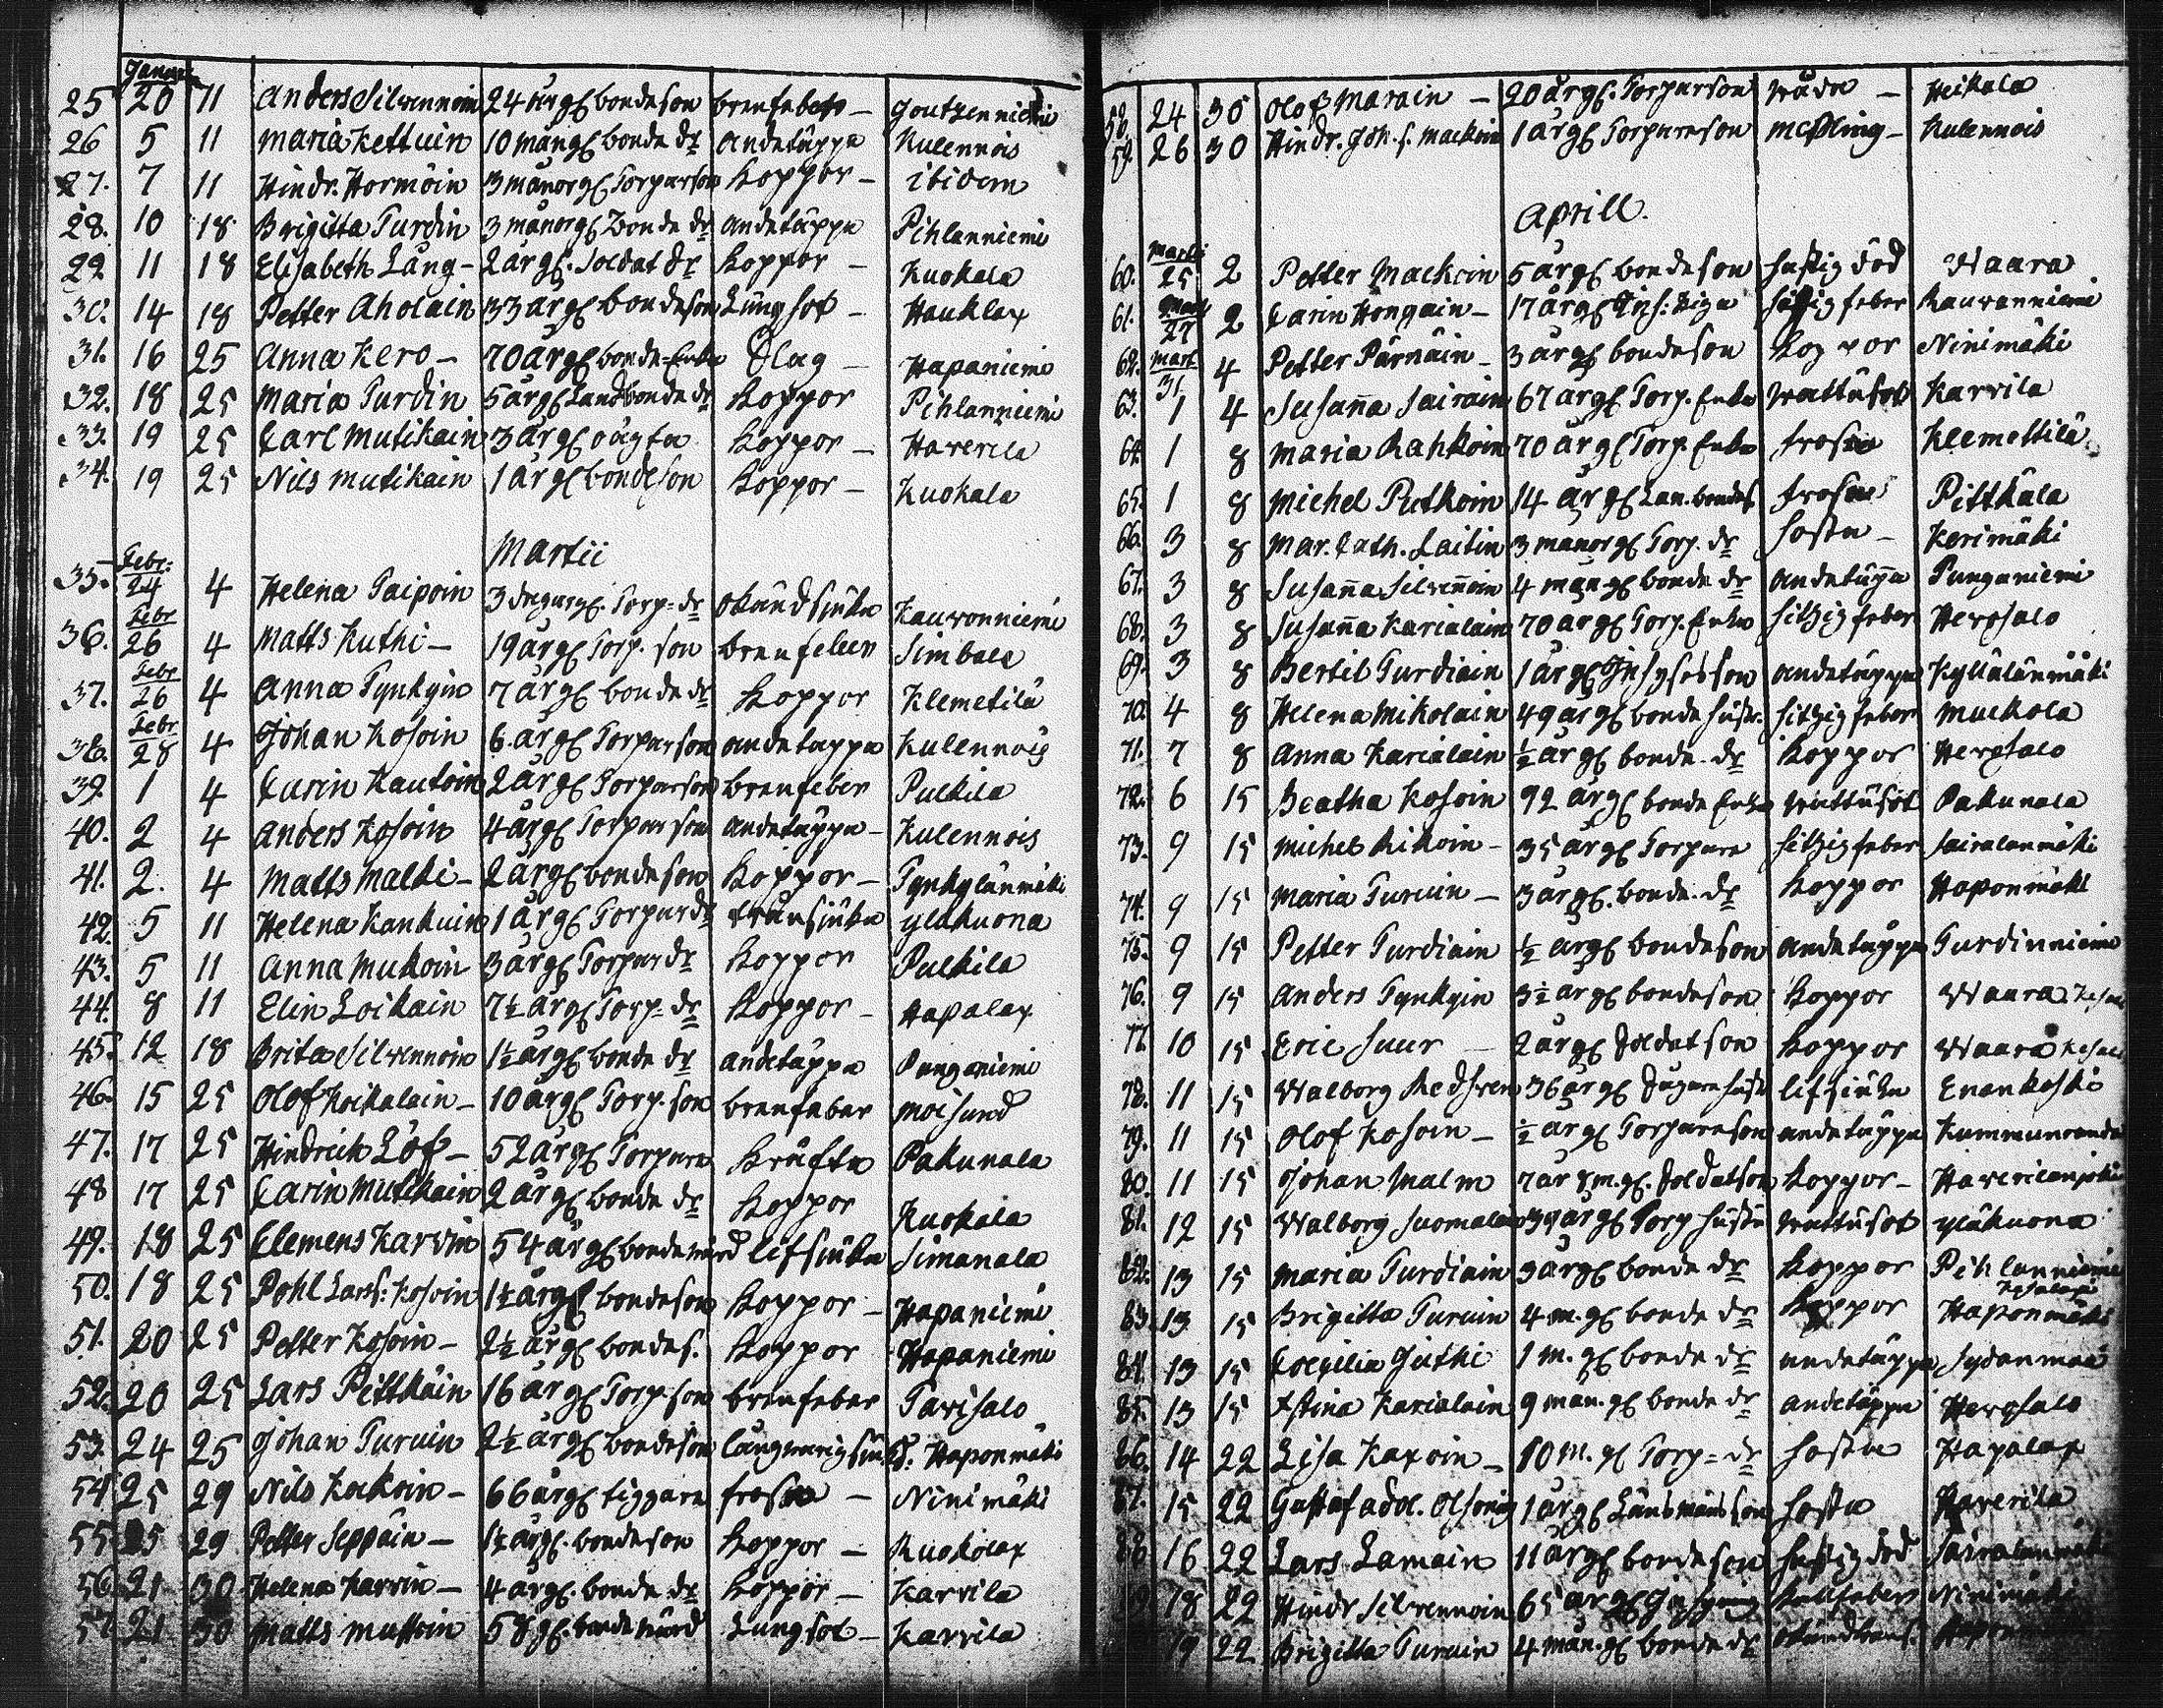 Januar:
25 20 11 Anders Silvennoin 24 årg. bondeson brenfeber Joutzenniemi
26 5 11 Maria Kettuin 10 mång. bonde dr andetäppa Kulennois
27. 7 11 Hindr. Hormöin 3 månerg. Torparson Koppor – ibidem
28. 10 18 Brigitta Turdin 3 månerg. Bonde dr andetäppa Pihlanniemi
29 11 18 Elisabeth Lång – 2 årg. Soldat dr Koppor – Kuokala
30. 14 18 Petter Aholain 33 årg. bondeson Lungsot – Hauklax
31. 16 25 Anna Kero – 70 årg. bonde-Enka Slag – Hapaniemi
32. 18 25 Maria Turdin 5 årg. Landbonde dr Koppor Pihlanniemi
33. 19 25 Carl Mutikain 3 årg. oägta Koppor – Haverila
34. 19 25 Nils Mutikain 1 årg. bondeson Koppor – Kuokala
Martii
35. Febr: 24 4 Helena Taipoin 3 dagarg. Torp= dr okändsjuka Kauvonniemi
36. Febr 26 4 Matts Kuthi – 19 årg. Torp. son brenfeber Simbala
37. Febr 26 4 Anna Tynkyin 7 årg. bonde dr Koppor Klemetilä
38. Febr 28 4 Johan Kosoin 6. årg. Torparson andetäppa Kulennois
39. 1 4 Carin Kautoin 2 årg. Torparson brenfeber Pulkila
40. 2 4 Anders Kosoin 4 årg. Torparson andetäppa – Kulennois
41. 2. 4 Matts Malki – 2 årg. bondeson Koppor – Tynkylänmäki
42. 5 11 Helena Kankuin 1 årg. Torpardr Yläkuona
43. 5 11 Anna Mukoin 3 årg. Torpardr Koppor Pulkila
44. 8 11 Elin Loikain 7½ årg. Torp= dr Koppor – Hapalax
45. 12 18 Brita Silvennoin 1½ årg. bonde dr andetäppa Punganiemi
46. 15 25 Olof Koikalain – 10 årg. Torp. son brenfeber Moisund
47. 17 25 Hindrich Löf – 52 årg. Torpare Kräfta Pakunala
48 17 25 Carin Mutikain 2 årg. bonde dr Koppor Kuokala
49. 18 25 Clemens Karvin 54 årg. bonde månd lifsjuka Simanala
50. 18 25 Pohl Larss: Kosoin 1½ årg. bondeson Koppor – Hapaniemi
51. 20 25 Petter Kosoin – 2½ årg. bondes. Koppor Hapaniemi
52. 20 25 Lars Pittkäin 16 årg. Torp. son brenfeber Tavisalo
53. 24 25 Johan Turuin 2½ årg. bondeson långvarig sjukd: Haponmäki
54 25 29 Nils Kockoin – 66 årg. tiggare frosan – Ninimäki
55 25 29 Petter Seppäin – 1½ årg. bondeson Koppor – Kuokolax
56 21 30 Helena Karvin – 4 årg. bonde dr Koppor – Karvila
57 21 30 Matts Mustoin 58 g. bonde månd Lungsot – Karvila
58. 24 30 Olof Marain – 20 årg. Torparson – Heikala
59. 26 30 Hindr. Joh. s. Mackoin 1 årg. Torpareson Mesling – Kulennois
Aprill.
60. Martii 25 2 Petter Mackoin 5 årg. bondeson hastig död Waara
61. Mart 27 2 Carin Hongain – 17 årg. hitzigfeber Rauvanniemi
62. Mart. 31. 4 Petter Pärnäin – 3 årg. bondeson Koppor Ninimäki
63. 1 4 Susanna Sairain 67 årg. Torp. Enka wattusot Karvila
64. 1 8 Maria Rahkoin 70 årg. Torp. Enka frosan Klemettilä
65. 1 8 Michel Putkoin 14 årg. Lan. bondes. frosan Pittkälä
66. 3 8 Mar. Cath. Laitin 3 månerg. Torp. dr hosta – Kerimäki
67. 3 8 Susanna Silvennoin 4 mång. bonde dr andetäppa Punganiemi
68. 3 8 Susanna Karialain 70 årg. Torp. Enka hitzigfeber Herssalo
69. 3 8 Bertil Turdiain 1 årg. Inhyses son andetäppa Kyllälänmäki
70. 4 8 Helena Mikolain 49 årg. bonde hustr. hitzigfeber Muckola
71. 7 8 Anna Karialain ½ årg. bonde dr Koppor Herssalo
72. 6 15 Beatha Kosoin 92 årg. bonde Enka wattusot Pakunala
73. 9 15 Michel Rikoin – 35 årg. Torpare hitzigfeber Sairalanmäki
74. 9 15 Maria Turuin – 3 årg. bonde dr Koppor Haponmäki
75. 9 15 Petter Turdiain ½ årg. bondeson andetäppa Turdinniemi
76. 9 15 Anders Tynkyin 3½ årg. bondeson Koppor Waara
77. 10 15 Eric Suur – 2 årg. Soldatson Koppor Waara
78. 11 15 Walborg Redsven 36 årg. lifsjuka Enankoski
79. 11 15 Olof Kosoin – ½ årg. Torpareson andetäppa
80. 11 15 Johan Malm 7 år 8 m. g. Soldatson Koppor – Haverilanjoki
81. 12 15 Walborg Suomalain 39 årg. Torp. hustru wattusot Yläkuona
82. 13 15 Maria Turdiain 3 årg. bonde dr Koppor Pihlanniemi
83. 13 15 Brigitta Turuin 4 m. g. bonde dr Koppor Haponmäki
84. 13 15 Coecilia Juthi 1 m. g. bonde dr andetäppa Sydänmaa
85. 13 15 Stina Karialain 9 mån. g. bonde dr andetäppa Herssalo
86. 14 22 Lisa Kaxoin – 10 m. g. Torp= dr hosta Hapalax
87. 15 22 Gustaf Adol. Olsonig 1 årg. Länsmans son hosta Haverila
88 16 22 Lars Lamain 11 årg. bondeson hastig död Sairalanmäki
18 22 Hindr Silvennoin 65 årg. Ninimäki
19 22 Brigitta Turuin 4 mån. g. bonde dr